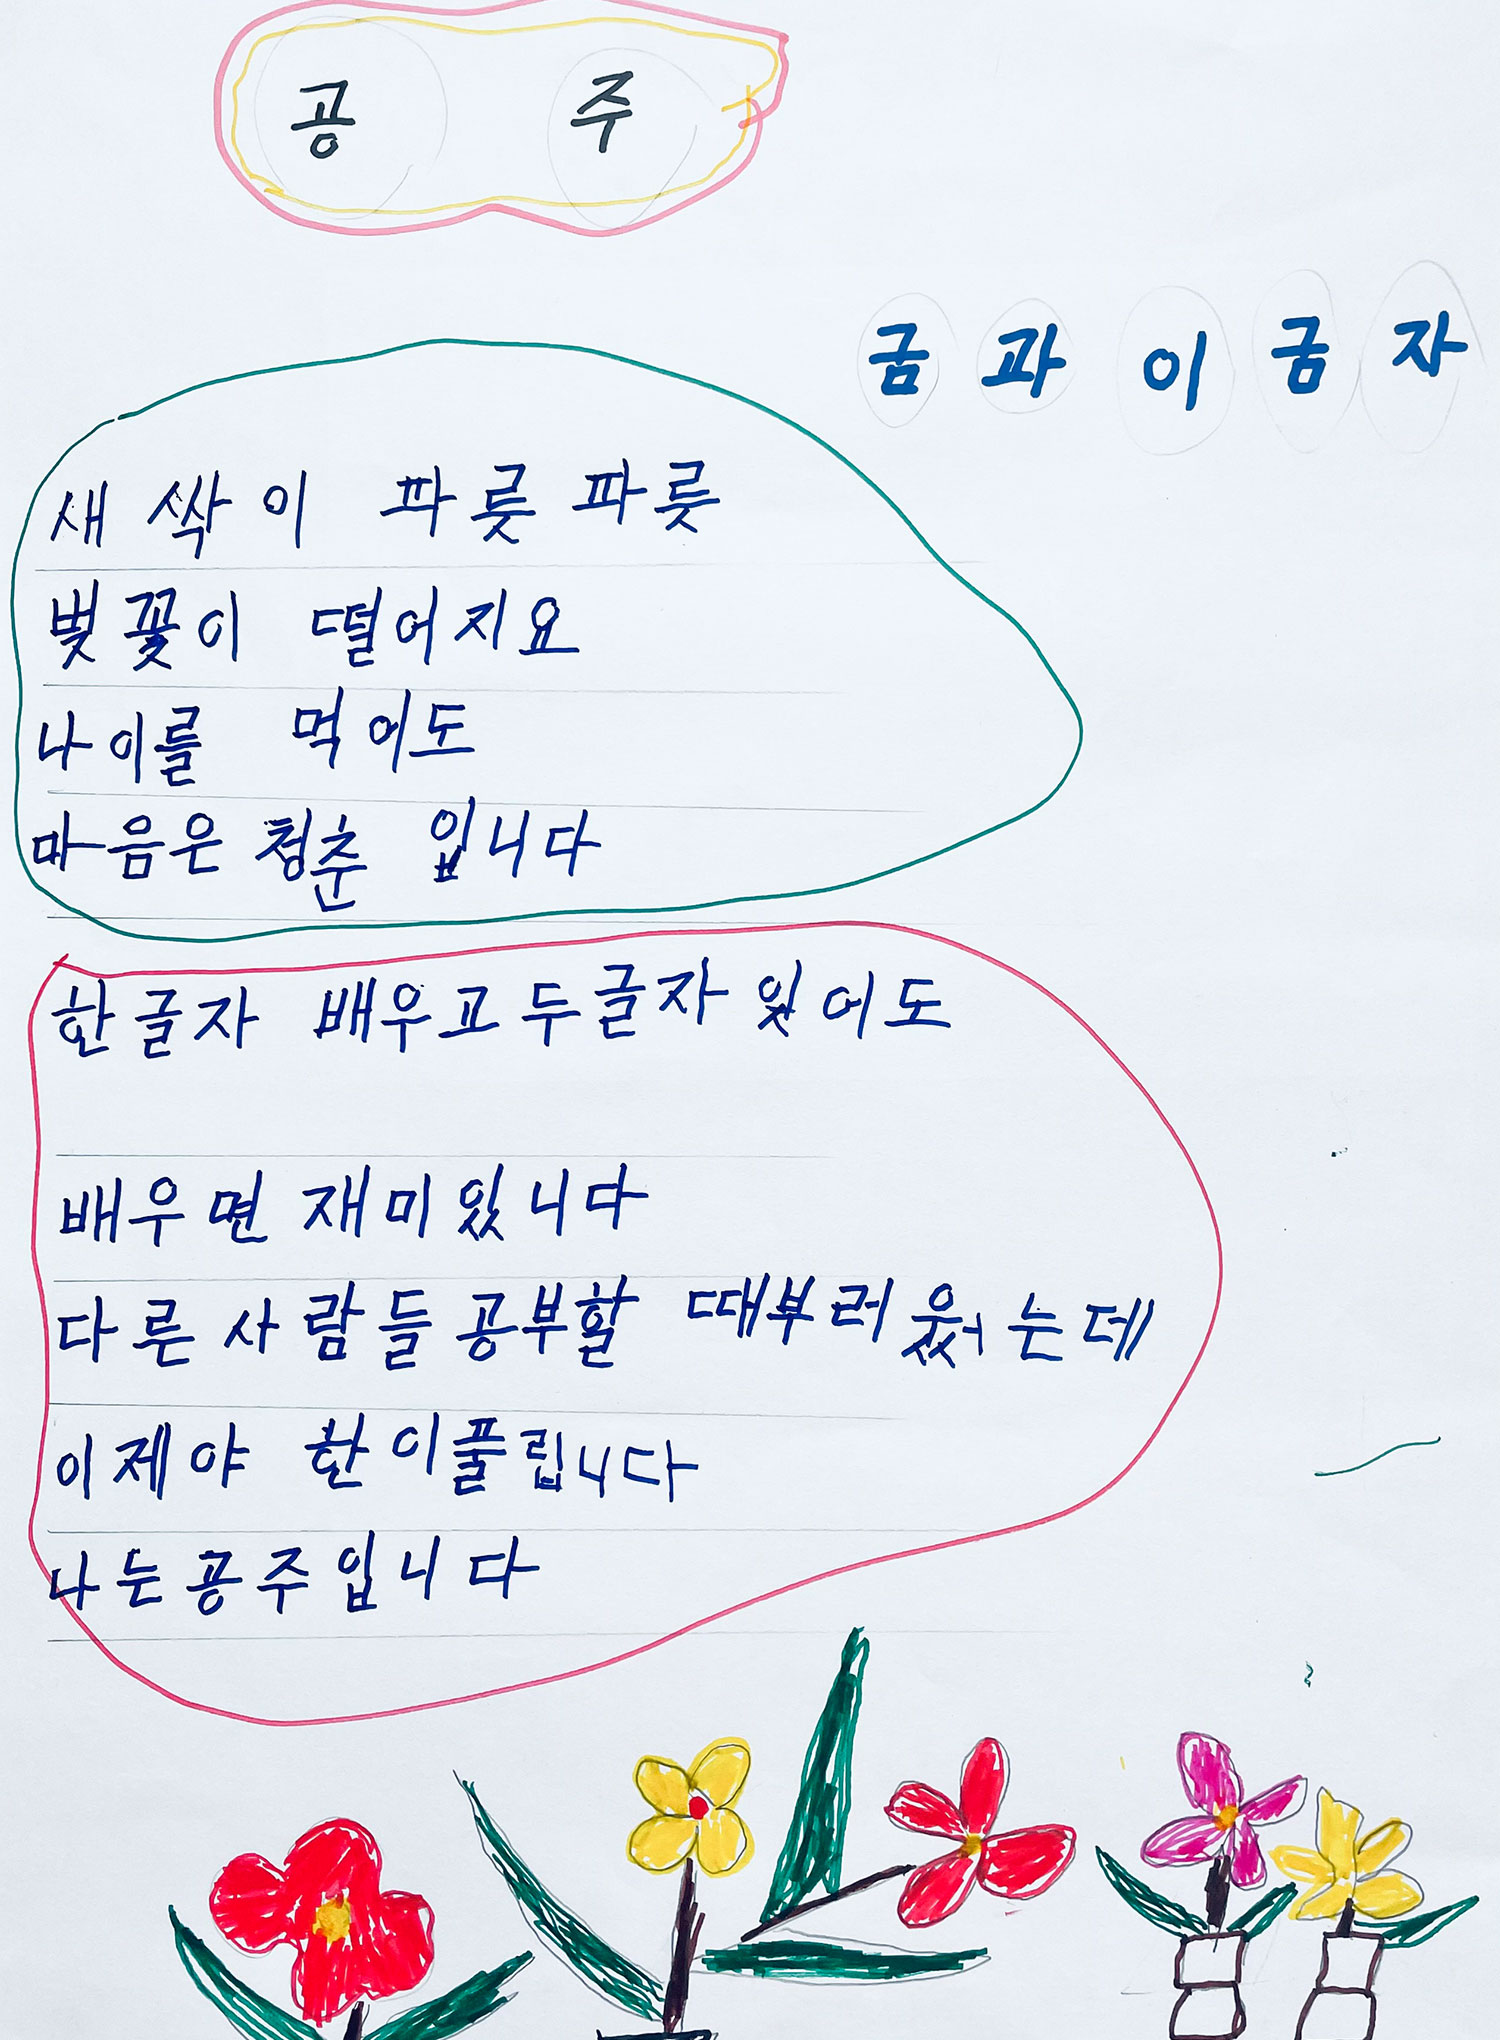 공 주
금과 이금자
새싹이 파릇파릇
벚꽃이 떨어지요
나이를 먹어도
마음은 청춘 입니다
한글자 배우고 두글자 잊어도
배우면 재미있니다
다른 사람들 공부할 때부러웠는데
이제야 한이풀립니다
나는공주입니다